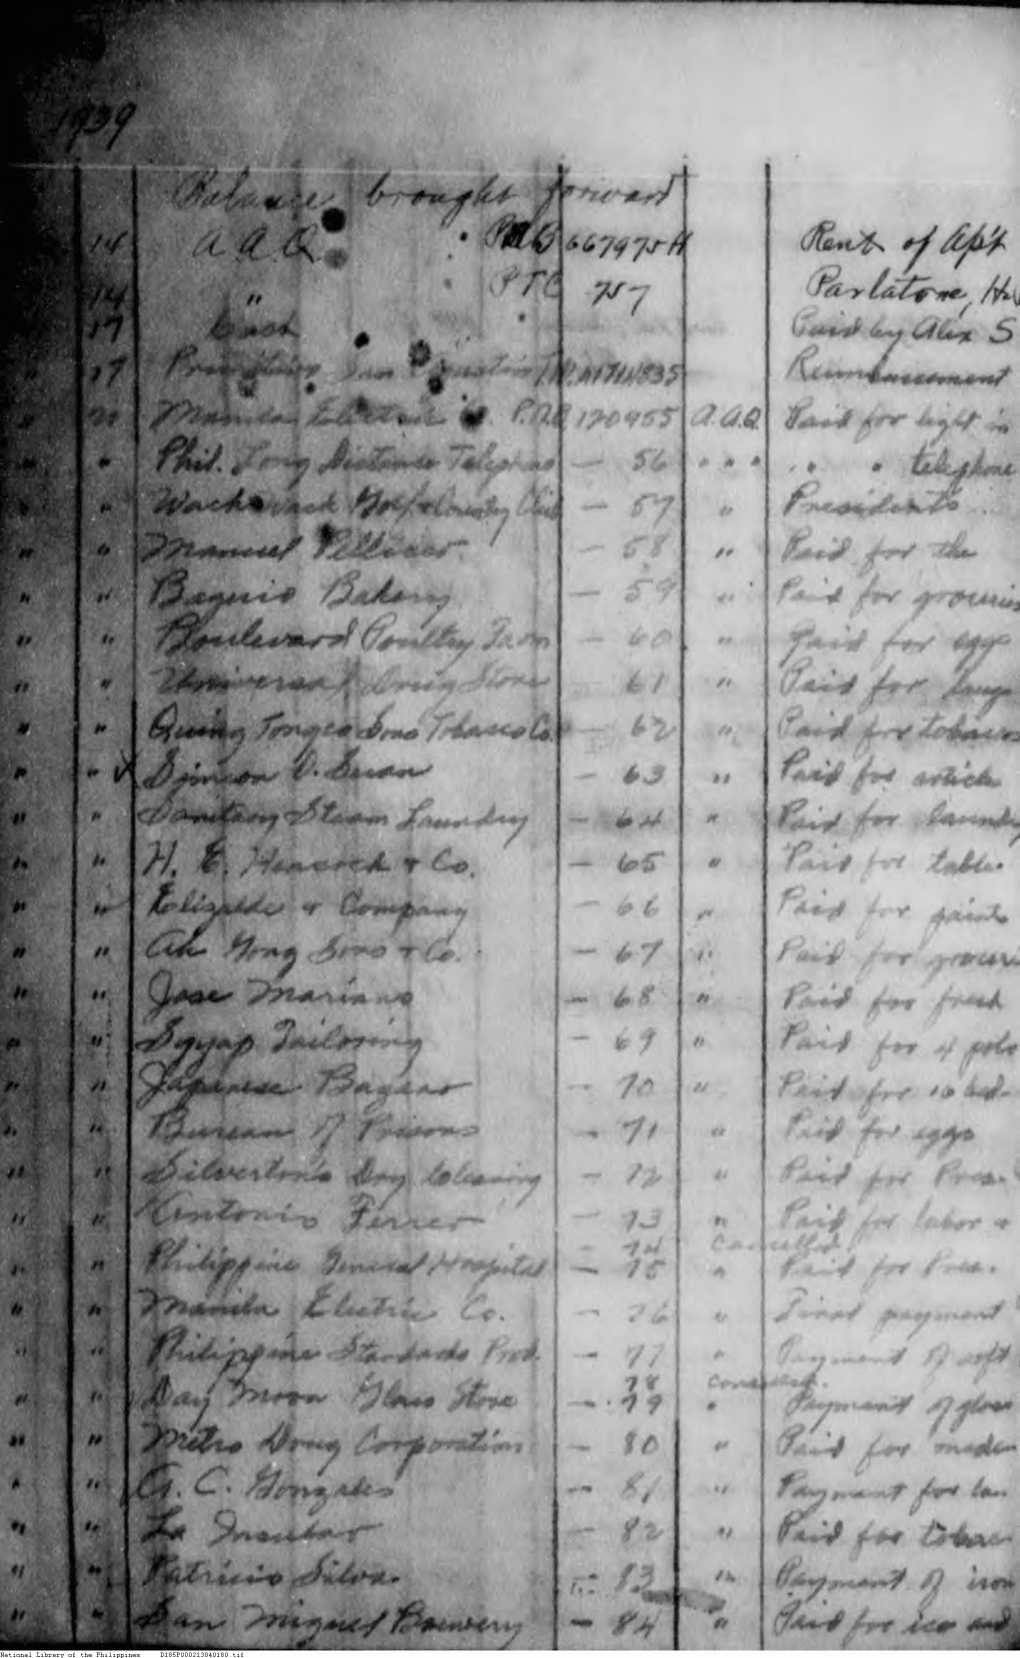 1939
Balance brought forward
14 A A Q " PNB 667975H Rent of Ap't
14 " " PTC 757 Parlatone, H
17 Cash " Paid by Alex S
" 17 San Agustin 835
" " Manila Electric Co. P.N.B. 120955 A.A.Q. Paid for light in
" " Phil. Long Distance Telephone — 56 " " " " " telephone
" " Wack Wack Golf & Country Club — 57 " President's
" " Manuel Pellicer — 58 " Paid for the
" " Baguio Bakery — 59 " Paid for groceries
" " Boulevard Poultry Farm — 60 " Paid for egg
" " Universal Drug Store — 61 " Paid for
" " Quing Tongco Sons Tobacco Co. — 62 " Paid for tobacco
" " Simeon O. — 63 " Paid for article
" " Sanitary Steam Laundry — 64 " Paid for laundry
" " H. E. Heacock & Co. — 65 " Paid for table
" " Elizalde & Company — 66 " Paid for paint
" " Ah Gong Sons & Co. — 67 " Paid for groceri
" " Jose Mariano — 68 " Paid for fresh
" " Syyap Tailoring — 69 " Paid for 4 polo
" " Japanese Bazaar — 70 " Paid for 10 bed-
" " Bureau of Prisons — 71 " Paid for eggs
" " Silverton's Dry Cleaning — 72 " Paid for Pres.
" " Antonio Ferrer — 73 " Paid for labor &
— 74 Cancelled
" " Philippine General Hospital — 75 " Paid for Pres.
" " Manila Electric Co. — 76 " Final payment
" " Philippine Standards Prod. — 77 " Payment of soft
78 Cancelled.
" " Day Moon Glass Store — 79 " Payment of glass
" " Metro Drug Corporation — 80 " Paid for medi
" " A. C. Gonzales — 81 " Payment for
" " La Insular — 82 " Paid for tobac
" " Patricio Silva — 83 " Payment of iron
" " San Miguel Brewery — 84 " Paid for ice and
National Library of the Philippines D185P000213040180.tif